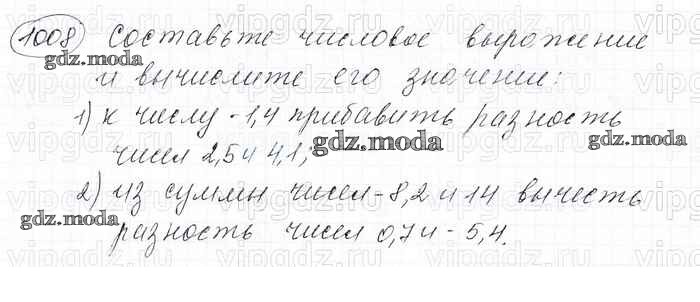 1008 Составьте числовое выражение
и вычислите его значение:
1) к числу -1,4 прибавить разность
чисел 2,5 и 4,1;
2) из суммы чисел -8,2 и 14 вычесть
разность чисел 0,7 и -5,4.
gdz.moda
gdz.moda
gdz.moda
gdz.moda